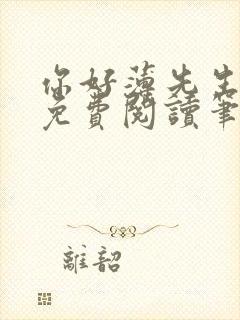 你好薄先生
免費閱讀筆
離韶